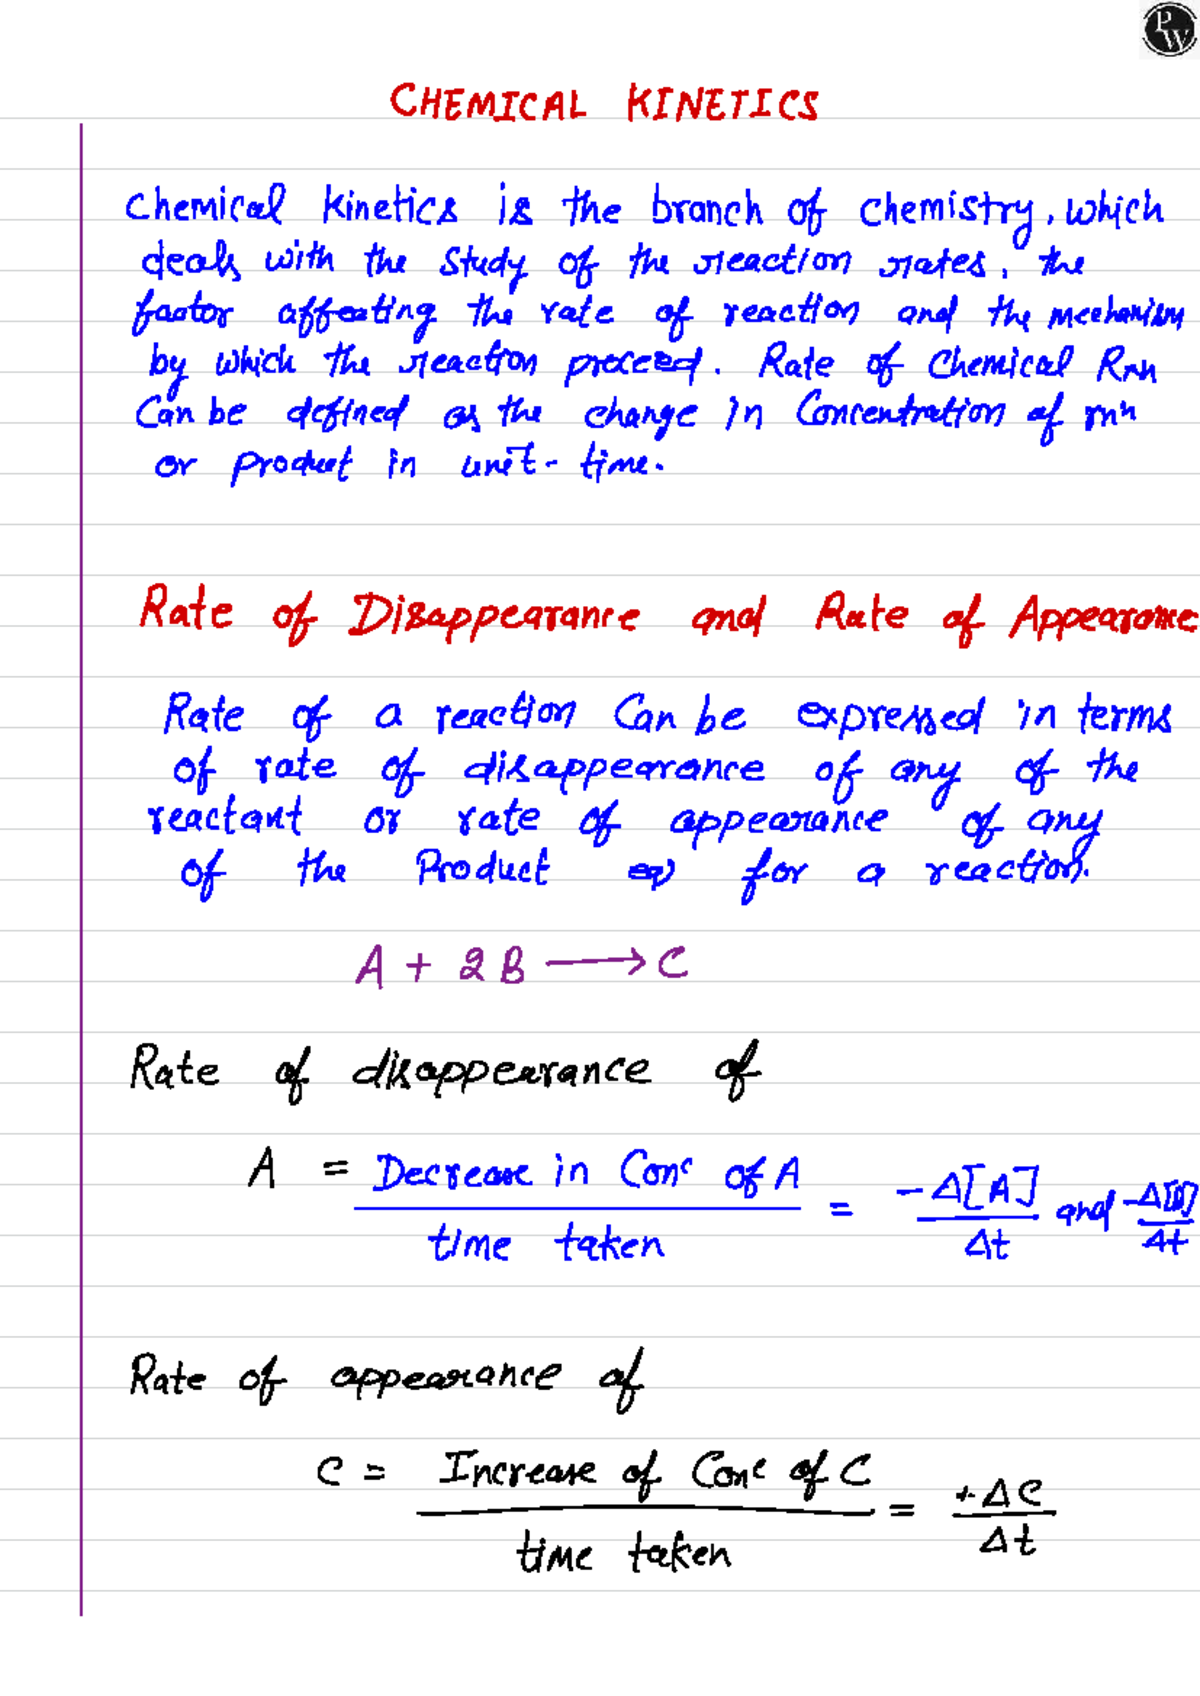 PW
CHEMICAL KINETICS
Chemical kinetics is the branch of chemistry, which
deals with the study of the reaction rates, the
factor affecting the rate of reaction and the mechanism
by which the reaction proceed. Rate of Chemical Rxn
Can be defined as the change in Concentration of rxn
or product in unit- time.
Rate of Disappearance and Rate of Appearance
Rate of a reaction Can be expressed in terms
of rate of disappearance of any of the
reactant or rate of appearance of any
of the Product for a reaction.
A + 2B ⟶ C
Rate of disappearance of
A = Decrease in Conc of A / time taken = -Δ[A] / Δt and -Δ[B] / Δt
Rate of appearance of
C = Increase of Conc of C / time taken = +ΔC / Δt